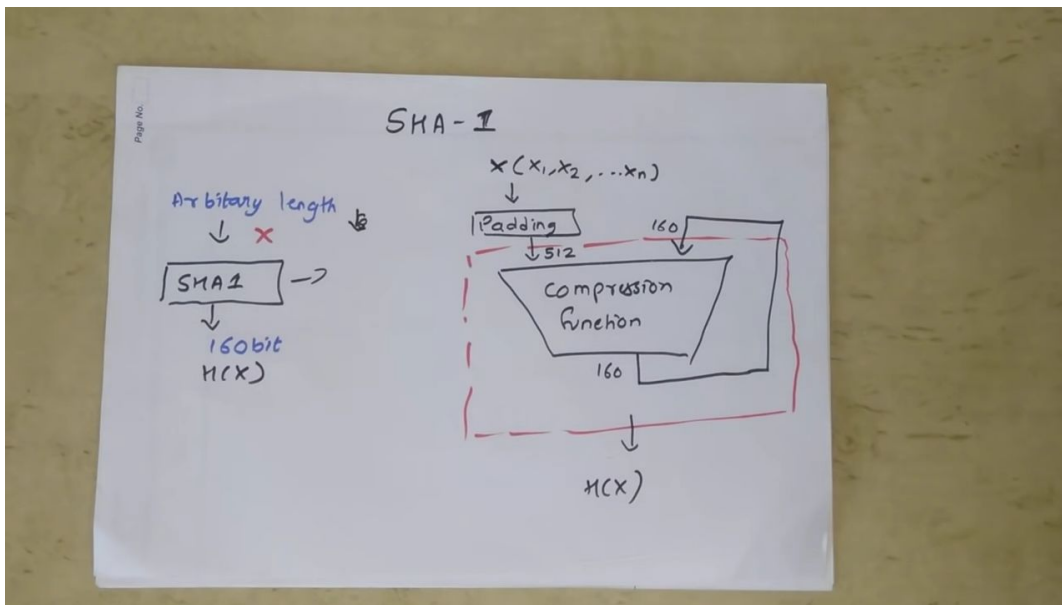 Page No.
SHA-1
Arbitary length
X
SHA1
160bit
H(X)
X(X1,X2,...Xn)
Padding
512
160
compression
function
160
H(X)